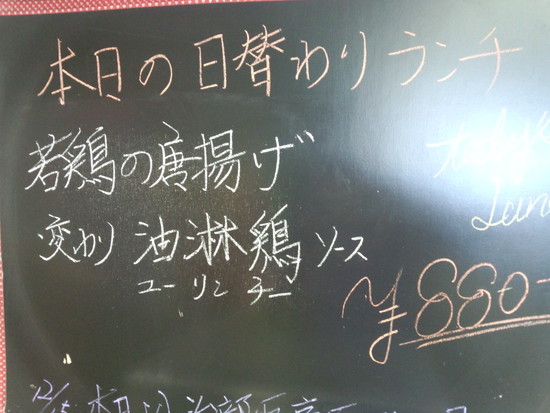 本日の日替わりランチ
若鶏の唐揚げ
変わり油淋鶏ソース
ユーリンチー
¥880-
12/15 本日より